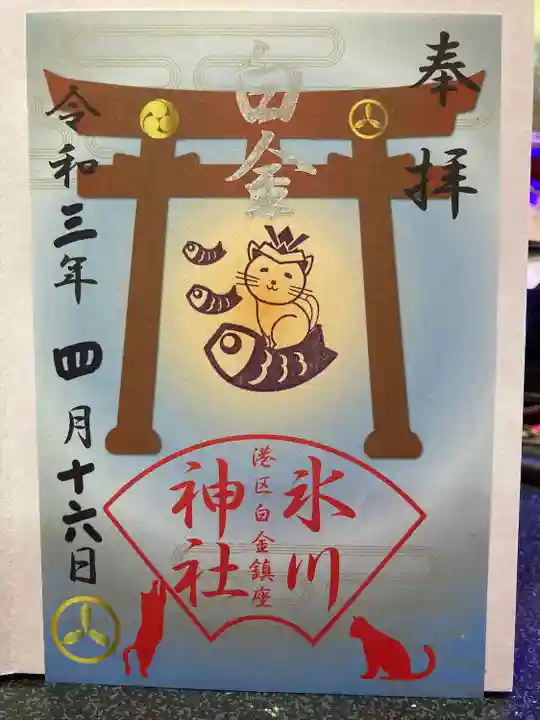 奉拝
白金
氷川
港区白金鎮座
神社
令和三年 四月十六日